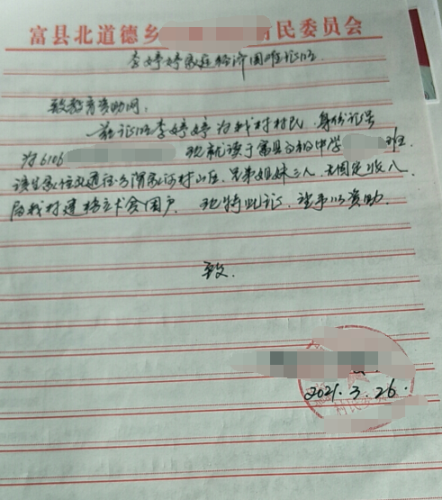 富县北道德乡 村民委员会
李婷婷家庭经济困难证明
致教育资助网:
兹证明李婷婷为我村村民,身份证号
为6106 现就读于富县 中学 班
该生家住 村山区,兄弟姐妹三人,无固定收入
属我村建档立卡贫困户 现特此证,望予以资助.
致.
2021.3.26.